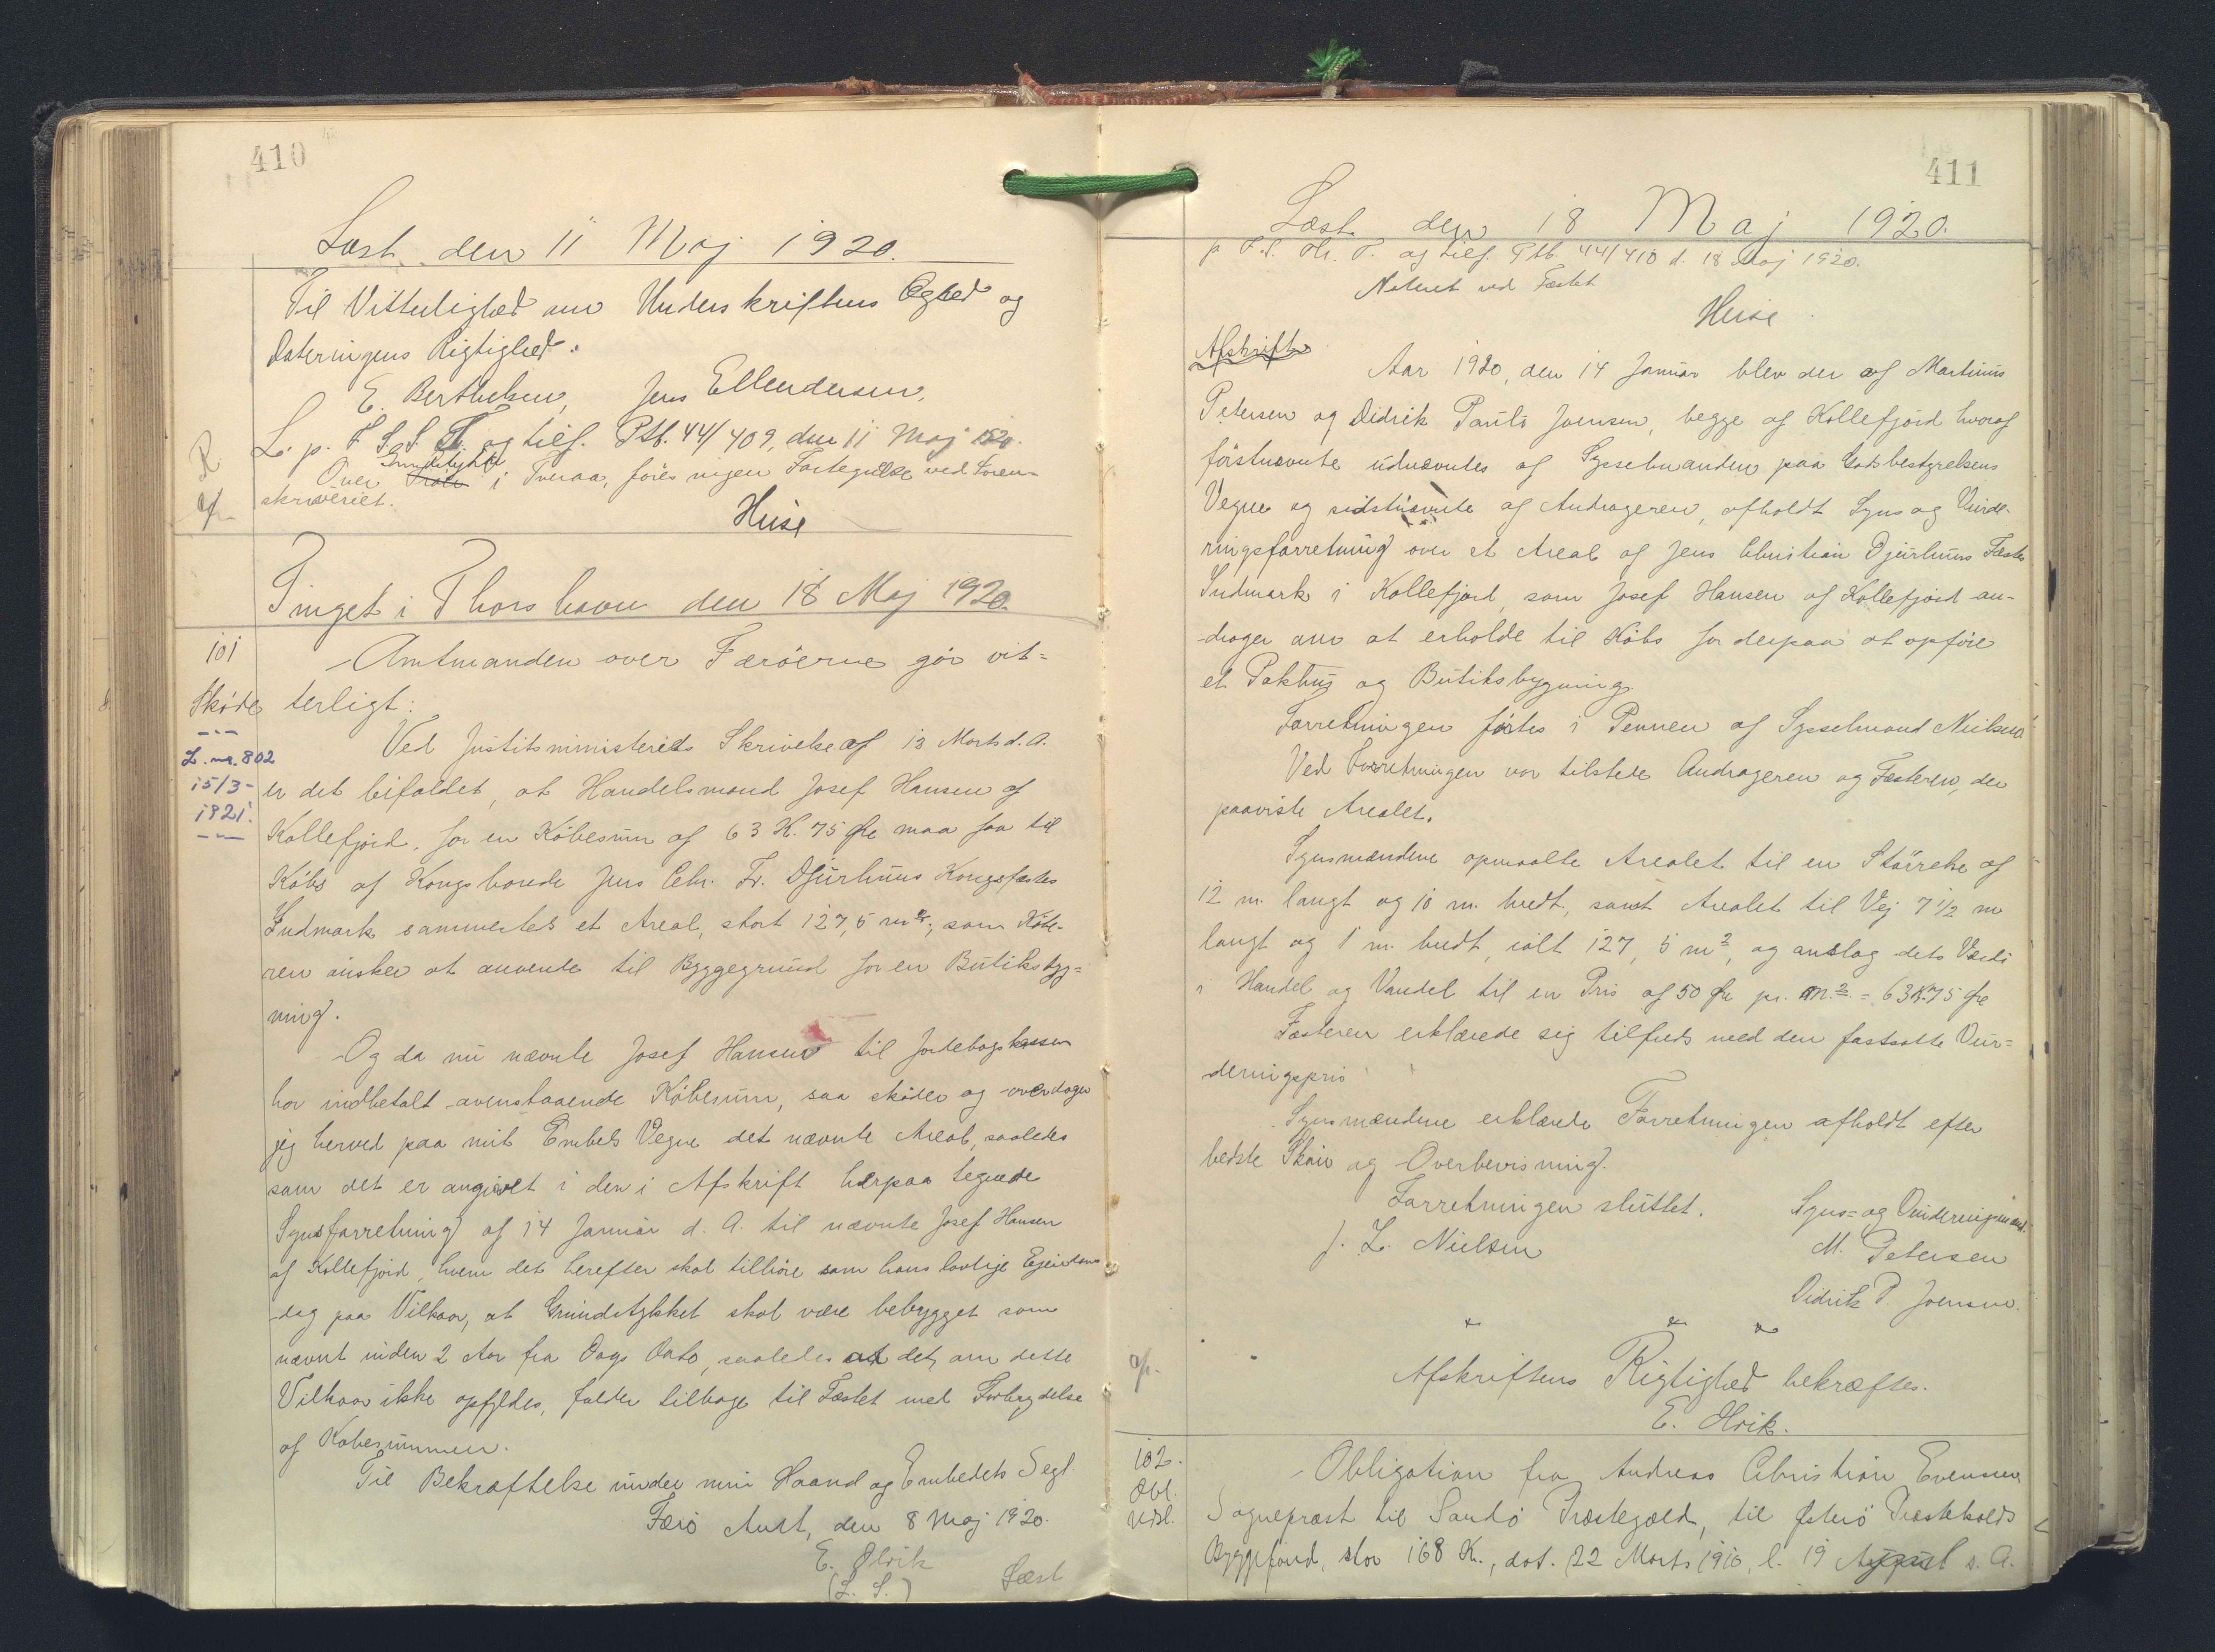 410
Læst den 11 Maj 1920.
Til Vitterlighed om Underskriftens Ægthed og
Dateringens Rigtighed.
E. Berthelsen, Jens Ellendersen,
L. p. F. S. S. T. og tilf. Ptb. 44/409, den 11 Maj 1920.
Grundstykke
Over i Tveraa, föres ingen Fortegnelse ved Soren-
skriveriet.
Huse
Tinget i Thorshavn den 18 Maj 1920.
101
Amtmanden over Færöerne gör vit-
Sköde terligt:
Ved Justitsministeriets Skrivelse af 13 Marts d. A.
L. nr. 802
15/3-
1921.
er det bifaldet, at Handelsmand Josef Hansen af
Kollefjord, for en Köbesum af 63 K. 75 Øre maa faa til
Købs af Kongsbonde Jens Chr. Fr. Djurhuus Kongsfæstes
Indmark sammesteds et Areal, stort 127,5 m2, som Köbe-
ren önsker at anvende til Byggegrund for en Butiksbyg-
ning.
Og da nu nævnte Josef Hansen til Jordebogskassen
har indbetalt ovenstaaende Köbesum, saa sköder og overdrager
jeg herved paa mit Embeds Vegne det nævnte Areal, saaledes
som det er angivet i den i Afskrift herpaa tegnede
Synsforretning af 14 Januar d. A. til nævnte Josef Hansen
af Kollefjord, hvem det herefter skal tilhöre som hans lovlige Ejendom
dog paa Vilkaar, at Grundstykket skal være bebygget som
nævnt inden 2 Aar fra Dags Dato, saaledes at det, om dette
Vilkaar ikke opfyldes, falder tilbage til Fæstet med Forbrydelse
af Købesummen.
Til Bekræftelse under min Haand og Embedets Segl
Færö Amt, den 8 Maj 1920.
E. Olrik
(L. S.)
Læst
411
Læst den 18 Maj 1920.
p. F. S. Th. T. og tilf. Ptb. 44/410 d. 18 Maj 1920.
Noteret ved Fæstet
Huse
Afskrift
Aar 1920, den 14 Januar blev der af Martinus
Petersen og Didrik Paul Joensen, begge af Kollefjord hvoraf
förstnævnte udnævntes af Sysselmanden paa Godsbestyrelsens
Vegne og sidstnævnte af Andrageren, afholdt Syns og Vurde-
ringsforretning over et Areal af Jens Christian Djurhuus Fæste
Indmark i Kollefjord, som Josef Hansen af Kollefjord an-
drager om at erholde til Köbs for derpaa at opföre
et Pakhus og Butiksbygning.
Forretningen førtes i Pennen af Sysselmand Nielsen
Ved Forretningen var tilstede Andrageren og Fæsteren, der
paaviste Arealet.
Synsmændene opmaalte Arealet til en Störrelse af
12 m. langt og 10 m. bredt, samt Arealet til Vej 7 1/2 m
langt og 1 m. bredt, ialt 127,5 m2, og anslog dets Værdi
i Handel og Vandel til en Pris af 50 Øre pr. m2. = 63K.75 Øre
Fæsteren erklærede sig tilfreds med den fastsatte Vur-
deringspris
Synsmændene erklærede Forretningen afholdt efter
bedste Skøn og Overbevisning.
Forretningen sluttet. Syns- og Vurderingsmænd.
J. L. Nielsen M. Petersen
Didrik P. Joensen.
Afskriftens Rigtighed bekræftes.
E. Olrik.
102.
Obl.
Udsl.
Obligation fra Andreas Christian Evensen
Sognepræst til Sandö Præstegæld, til Østerö Præstekalds
Byggefond, stor 168 K., dat. 22 Marts 1910, l. 19 August s. A.